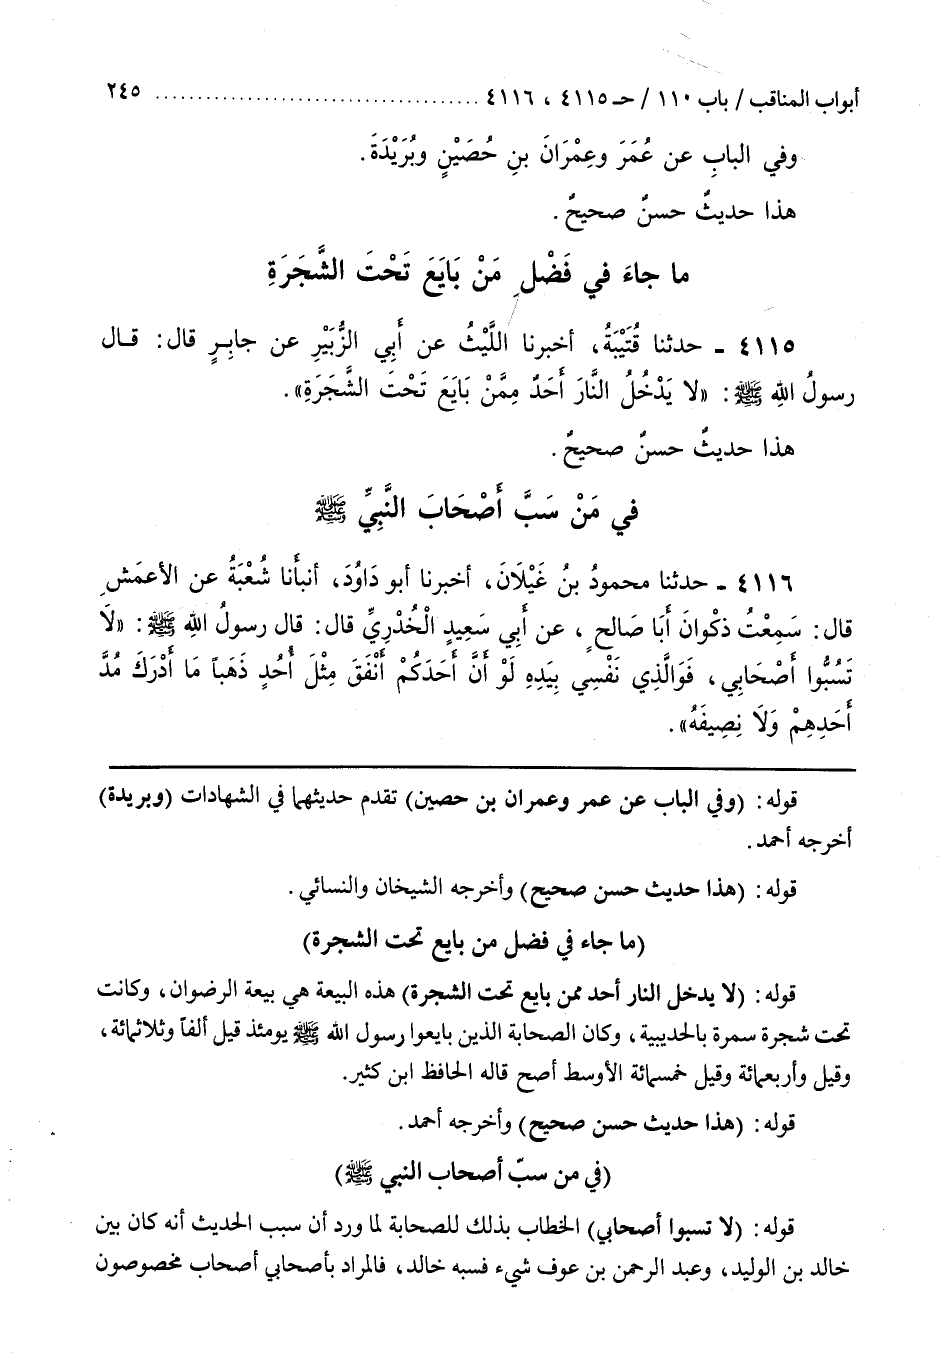 أبواب المناقب / باب ١١٠ / حـ ٤١١٥ ، ٤١١٦ ..................................... ٢٤٥
وفي البابِ عن عُمَرَ وعِمْرَانَ بنِ حُصَيْنٍ وبُرَيْدَةَ.
هذا حديثٌ حسنٌ صحيحٌ.
ما جاءَ في فَضْلِ مَنْ بَايَعَ تَحْتَ الشَّجَرَةِ
٤١١٥ ـ حدثنا قُتَيْبَةُ، أخبرنا اللَّيْثُ عن أَبِي الزُّبَيْرِ عن جابِرٍ قال: قـال
رسولُ اللهِ ﷺ: «لا يَدْخُلُ النَّارَ أَحَدٌ مِمَّنْ بَايَعَ تَحْتَ الشَّجَرَةِ».
هذا حديثٌ حسنٌ صحيحٌ.
في مَنْ سَبَّ أَصْحَابَ النَّبِيِّ ﷺ
٤١١٦ ـ حدثنا محمودُ بنُ غَيْلَانَ، أخبرنا أبو دَاوُدَ، أنبأَنا شُعْبَةُ عن الأعمَشِ
قال: سَمِعْتُ ذكْوانَ أَبَا صَالحٍ ، عن أَبِي سَعِيدٍ الْخُدْرِيِّ قال: قال رسولُ اللهِ ﷺ: «لَا
تَسُبُّوا أَصْحَابِي، فَوَالَّذِي نَفْسِي بِيَدِهِ لَوْ أَنَّ أَحَدَكُمْ أَنْفَقَ مِثْلَ أُحُدٍ ذَهَباً مَا أَدْرَكَ مُدَّ
أَحَدِهِمْ وَلَا نِصِيفَهُ».
قوله: (وفي الباب عن عمر وعمران بن حصين) تقدم حديثهما في الشهادات (وبريدة)
أخرجه أحمد.
قوله: (هذا حديث حسن صحيح) وأخرجه الشيخان والنسائي.
(ما جاء في فضل من بايع تحت الشجرة)
قوله: (لا يدخل النار أحد ممن بايع تحت الشجرة) هذه البيعة هي بيعة الرضوان، وكانت
تحت شجرة سمرة بالحديبية، وكان الصحابة الذين بايعوا رسول الله ﷺ يومئذ قيل ألفاً وثلاثمائة،
وقيل وأربعمائة وقيل خمسمائة الأوسط أصح قاله الحافظ ابن كثير.
قوله: (هذا حديث حسن صحيح) وأخرجه أحمد.
(في من سبّ أصحاب النبي ﷺ)
قوله: (لا تسبوا أصحابي) الخطاب بذلك للصحابة لما ورد أن سبب الحديث أنه كان بين
خالد بن الوليد، وعبد الرحمن بن عوف شيء فسبه خالد، فالمراد بأصحابي أصحاب مخصوصون